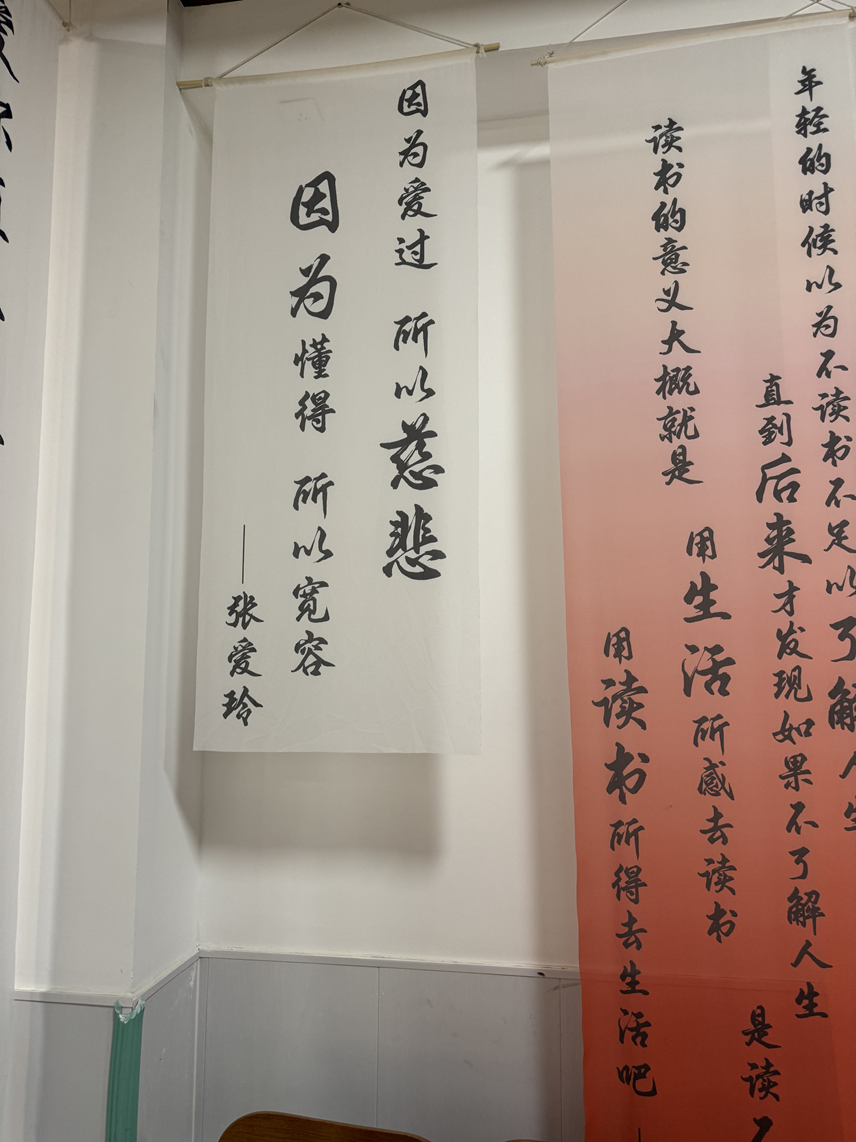 年轻的时候以为不读书不足以了解人生
直到后来才发现如果不了解人生
是读
读书的意义大概就是
用生活所感去读书
用读书所得去生活吧
因为爱过 所以慈悲
因为懂得 所以宽容
——张爱玲